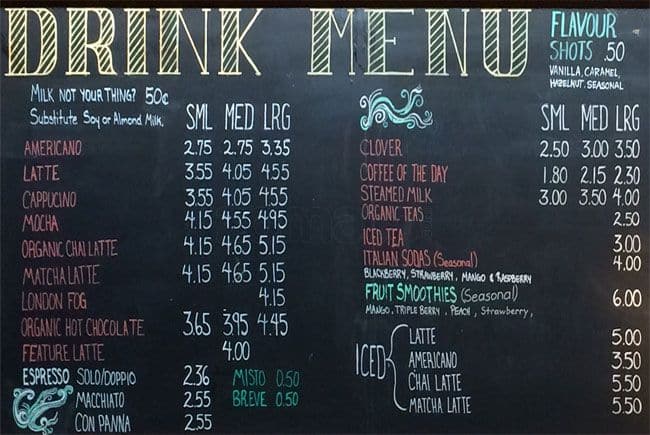 DRINK MENU
FLAVOUR
SHOTS .50
VANILLA, CARAMEL,
HAZELNUT, SEASONAL
MILK NOT YOUR THING? 50¢
Substitute Soy or Almond Milk.
SML MED LRG
AMERICANO 2.75 2.75 3.35
LATTE 3.55 4.05 4.55
CAPPUCINO 3.55 4.05 4.55
MOCHA 4.15 4.55 4.95
ORGANIC CHAI LATTE 4.15 4.65 5.15
MATCHA LATTE 4.15 4.65 5.15
LONDON FOG 4.15
ORGANIC HOT CHOCOLATE 3.65 3.95 4.45
FEATURE LATTE 4.00
ESPRESSO SOLO/DOPPIO 2.36 MISTO 0.50
MACCHIATO 2.55 BREVE 0.50
CON PANNA 2.55
SML MED LRG
CLOVER 2.50 3.00 3.50
COFFEE OF THE DAY 1.80 2.15 2.30
STEAMED MILK 3.00 3.50 4.00
ORGANIC TEAS 2.50
ICED TEA 3.00
ITALIAN SODAS (Seasonal) 4.00
BLACKBERRY, STRAWBERRY, MANGO & RASPBERRY
FRUIT SMOOTHIES (Seasonal) 6.00
MANGO, TRIPLE BERRY, PEACH, Strawberry,
ICED
LATTE 5.00
AMERICANO 3.50
CHAI LATTE 5.50
MATCHA LATTE 5.50